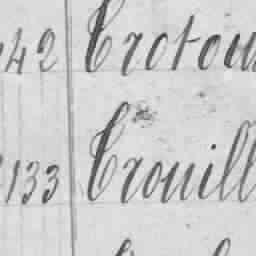 42 Trotou
133 Trouill